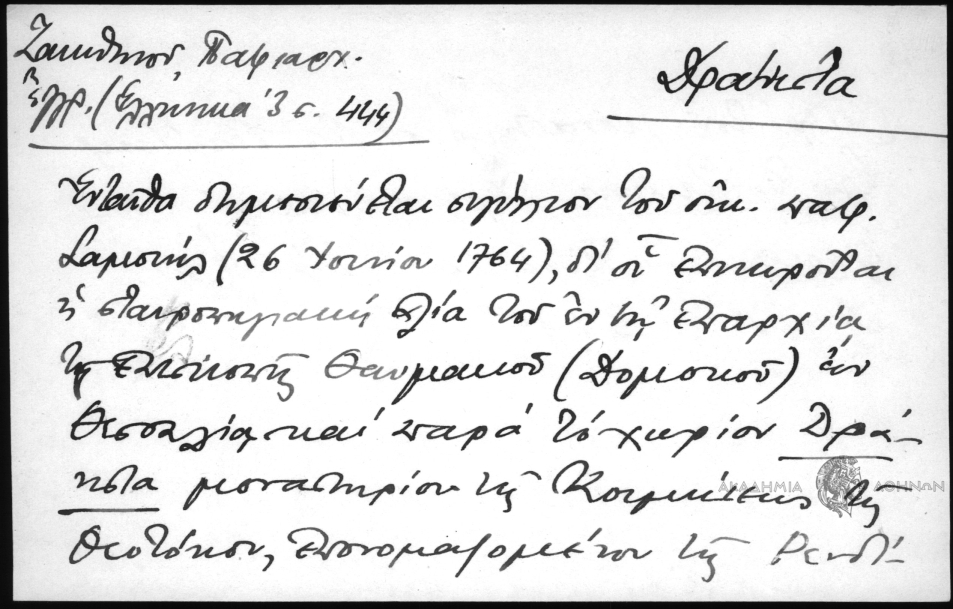 Ζακυθηνοῦ, Πατριαρχ.
ἔγγρ. (Ἑλληνικά 3 σ. 444)
Δράνιστα
Ἐνταῦθα δημοσιεύεται σιγίλλιον τοῦ οἰκ. πατρ.
Σαμουήλ (26 Ἰουνίου 1764), δι' οὗ ἐπικυροῦται
ἡ σταυροπηγιακή ἀξία τοῦ ἐν τῇ ἐπαρχίᾳ
τῆς ἐπισκοπῆς Θαυμακοῦ (Δομοκοῦ) ἐν
Θεσσαλίᾳ καί παρά τό χωρίον Δρά-
νιστα μοναστηρίου τῆς Κοιμήσεως τῆς
Θεοτόκου, ἐπονομαζομένου τῆς
ΑΚΑΔΗΜΙΑ ΑΘΗΝΩΝ